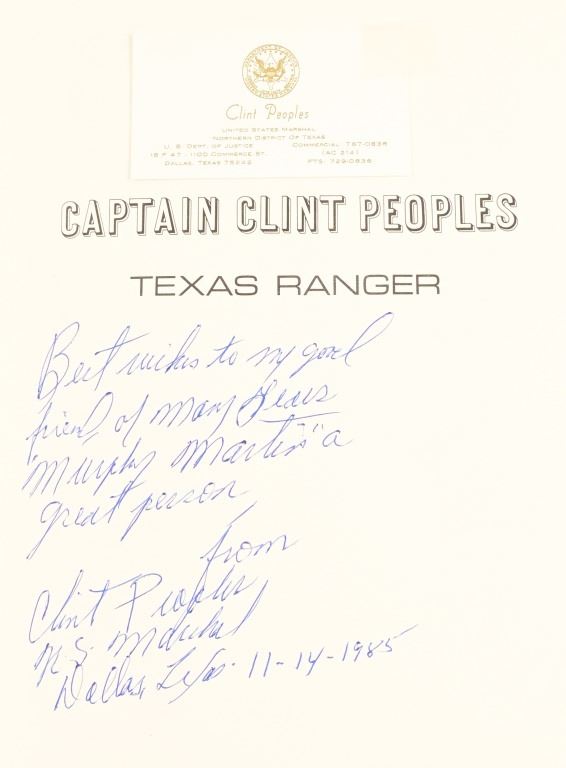 Clint Peoples
UNITED STATES MARSHAL
NORTHERN DISTRICT OF TEXAS
U. S. DEPT. OF JUSTICE COMMERCIAL 767-0836
16 F 47 - 1100 COMMERCE ST. (AC 214)
DALLAS, TEXAS 75242 FTS: 729-0836
CAPTAIN CLINT PEOPLES
TEXAS RANGER
Best wishes to my good
friend, of many years
"Murphy Martin" a
great person
from
Clint Peoples
U.S. Marshal
Dallas, Texas. 11-14-1985